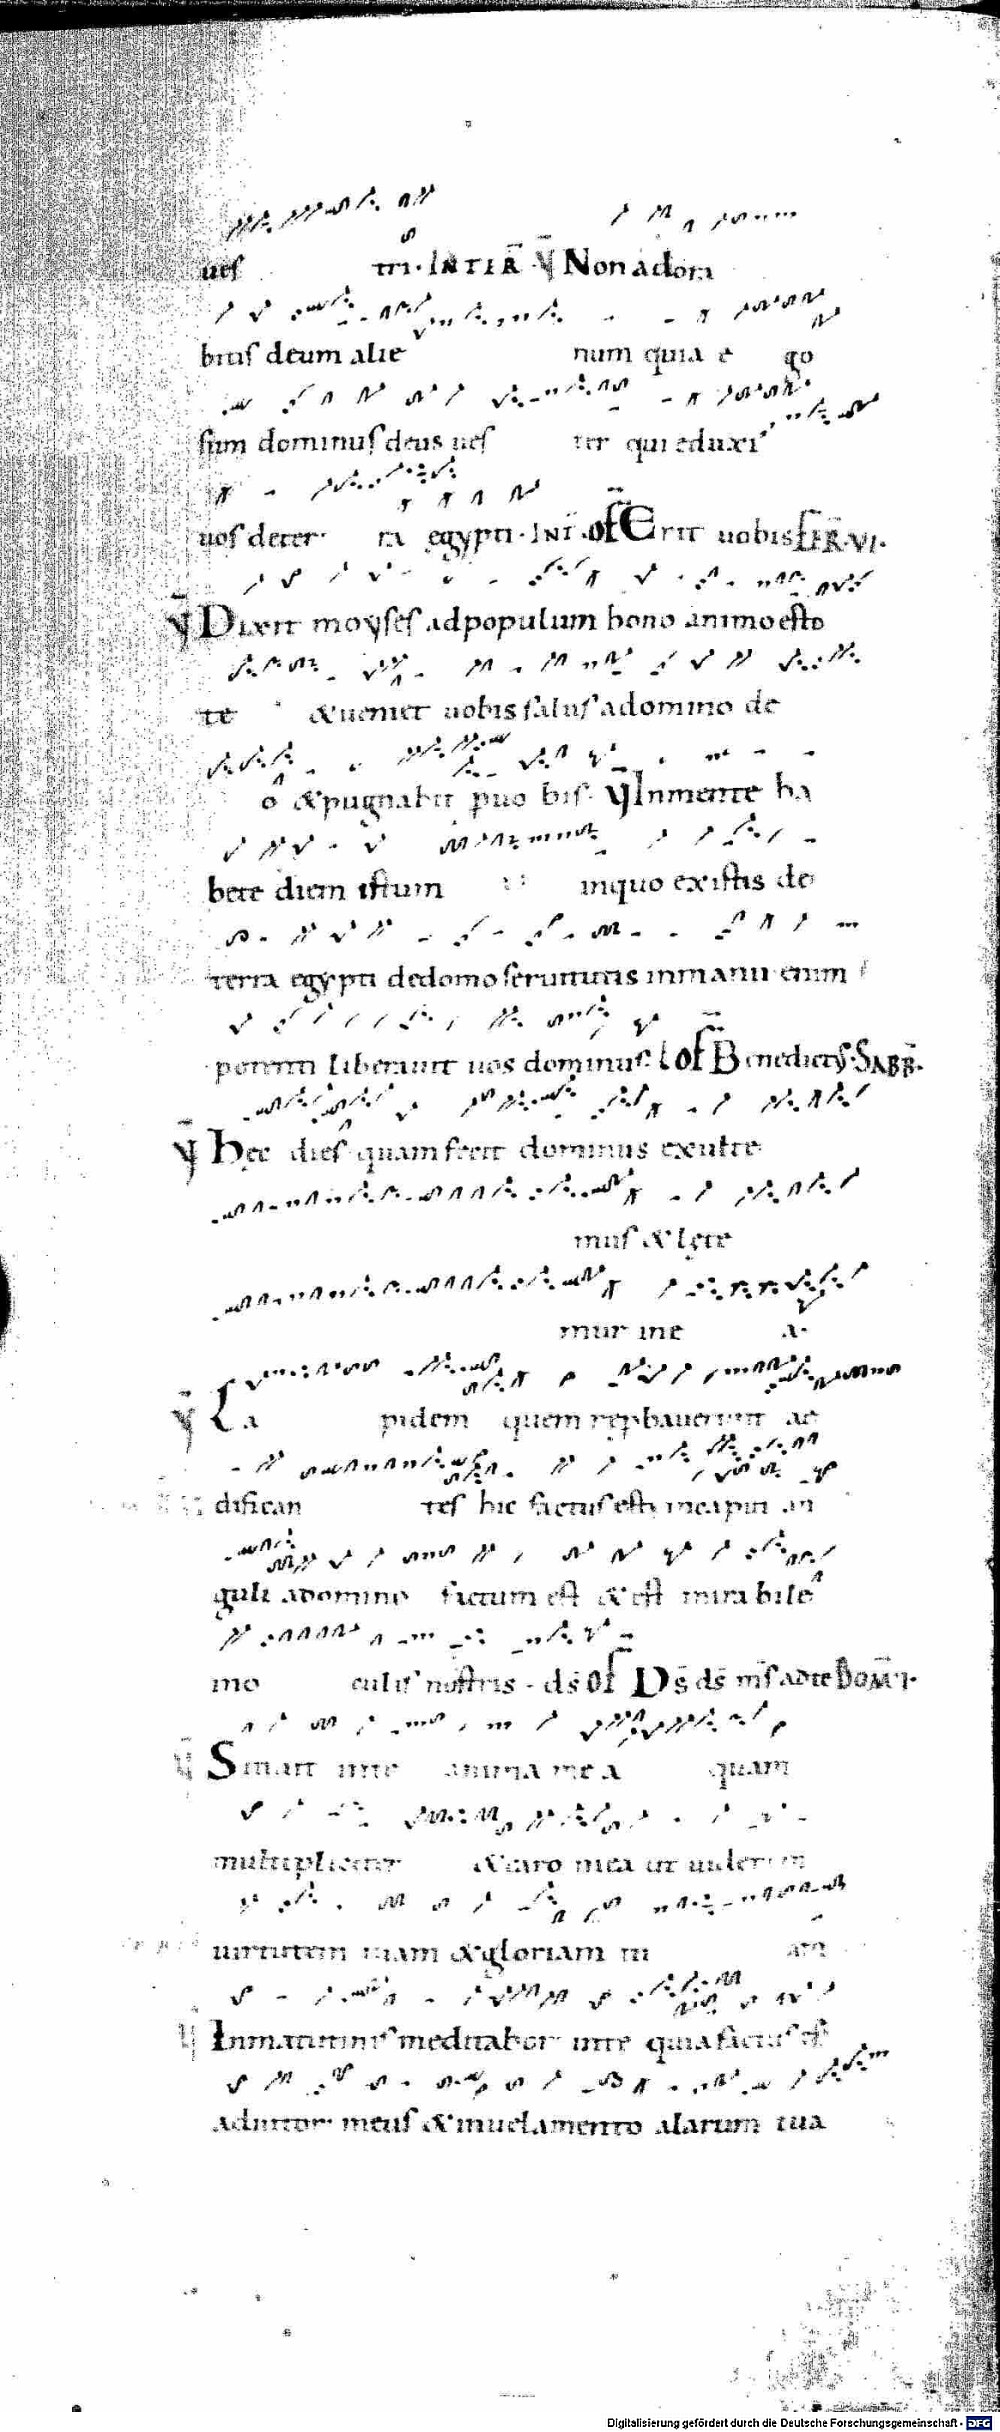 ues tri · INTER ℣ Non adora
bitis deum alie num quia e go
sum dominus deus ues ter qui eduxi
uos de ter ra egypti · INT · OF Erit uobis FER · VI ·
℣ Dixit moyses ad populum bono animo esto
te & ueniet uobis salus a domino de
o & pugnabit p uo bis · ℣ In mente ha
bete diem istum in quo existis de
terra egypti de domo seruitutis in manu enim
potenti liberauit uos dominus · OF Benedictus · SABB ·
℣ Hec dies quam fecit dominus exulte
mus & lęte
mur in e a ·
℣ La pidem quem rep̄bauerunt ae
difican tes hic factus est in caput an
guli a domino factum est & est mirabile
in o culis nostris · ds̄ OF Ds̄ ds̄ ms̄ ad te DOM · I ·
℣ Sitiuit in te anima mea quam
multipliciter & caro mea ut uiderem
uirtutem tuam & gloriam tu am
℣ In matutinis meditabor in te quia factus es
adiutor meus & in uelamento alarum tua
Digitalisierung gefördert durch die Deutsche Forschungsgemeinschaft - DFG